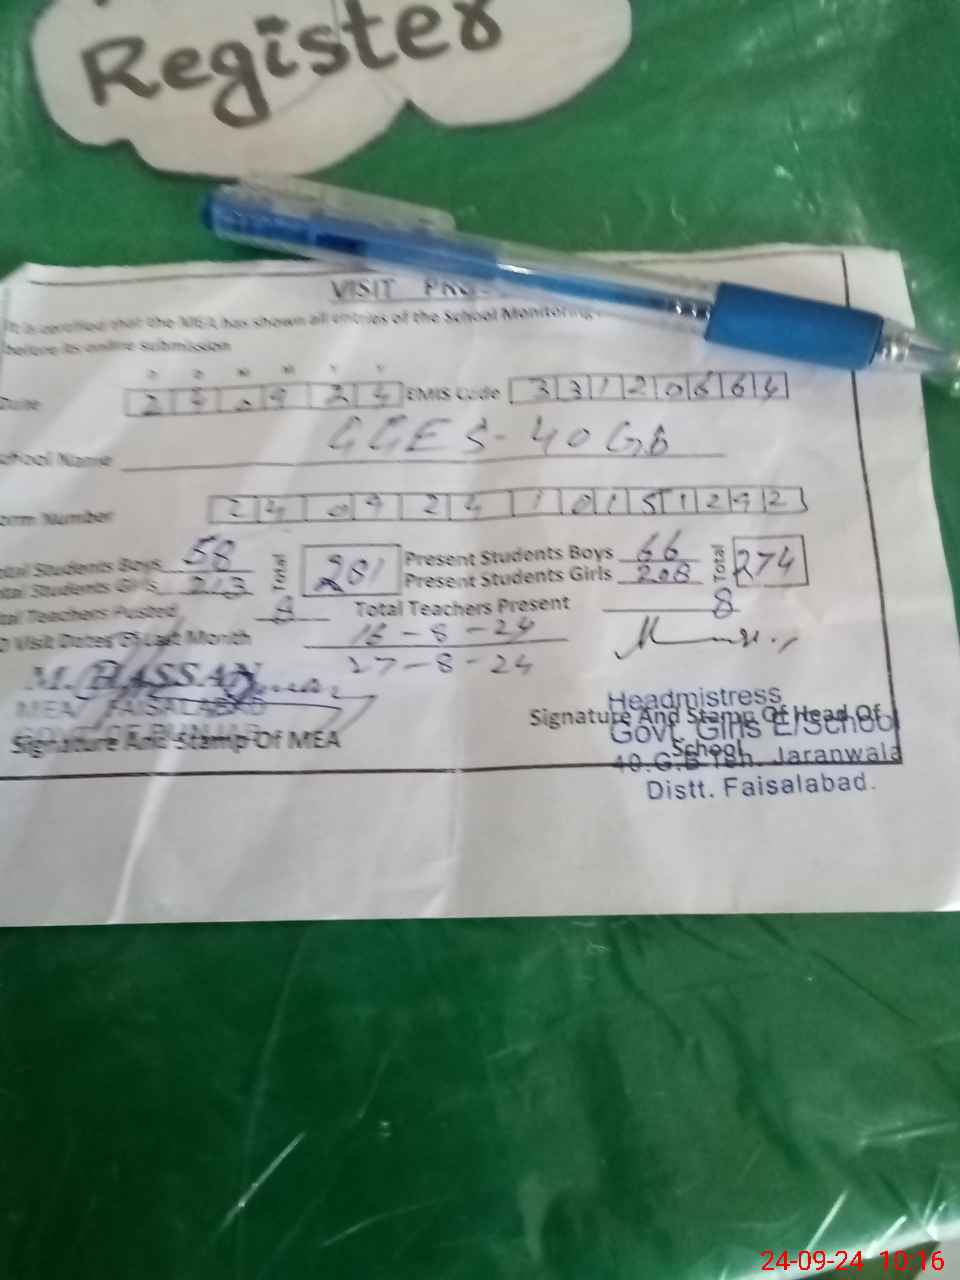 Register
VISIT
It is certified that the MEA has shown all entries of the School Monitoring
before its online submission
D D M M Y Y
24 09 24 EMIS Code 33120664
School Name GGES-40 GB
Number 24 09 24 10151292
Total Students Boys 58 Total Present Students Boys 66 Total 274
Total Students Girls Present Students Girls 208
Total Teachers Posted 8 Total Teachers Present 8
Visit Dates Of Last Month 16-8-24
27-8-24
M. HASSAN
MEA FAISALABAD
Signature And Stamp Of MEA
Headmistress
Signature And Stamp Of Head Of
Govt. Girls E/School
School
40.G.B Teh. Jaranwala
Distt. Faisalabad.
24-09-24 10:16